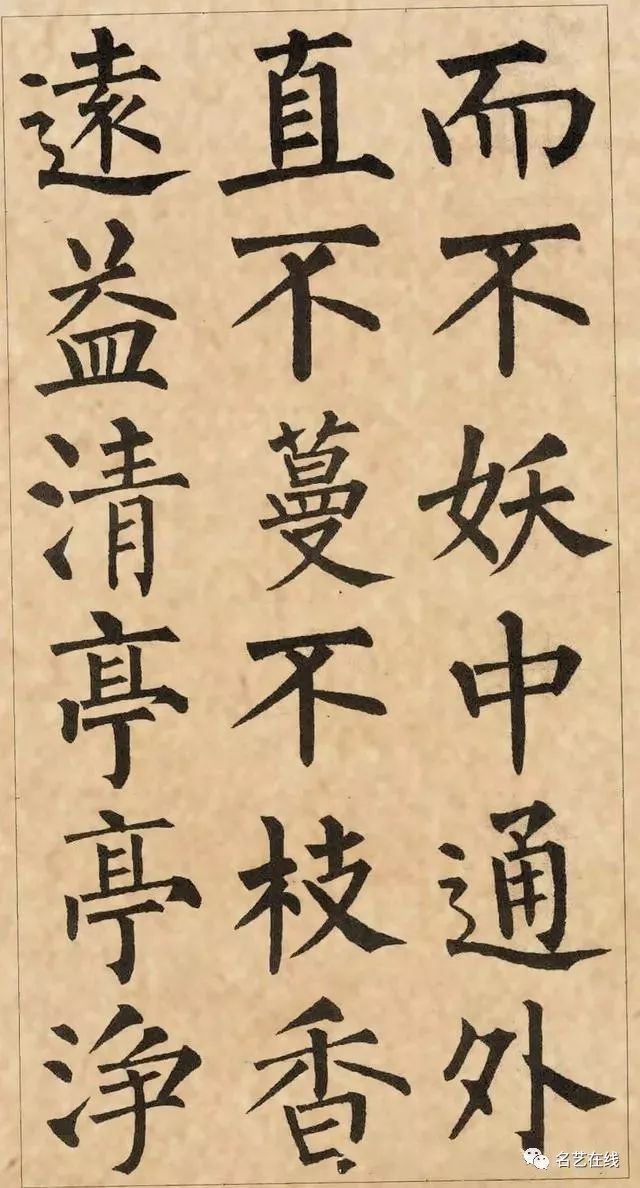 而不妖中通外
直不蔓不枝香
遠益清亭亭浄
名艺在线